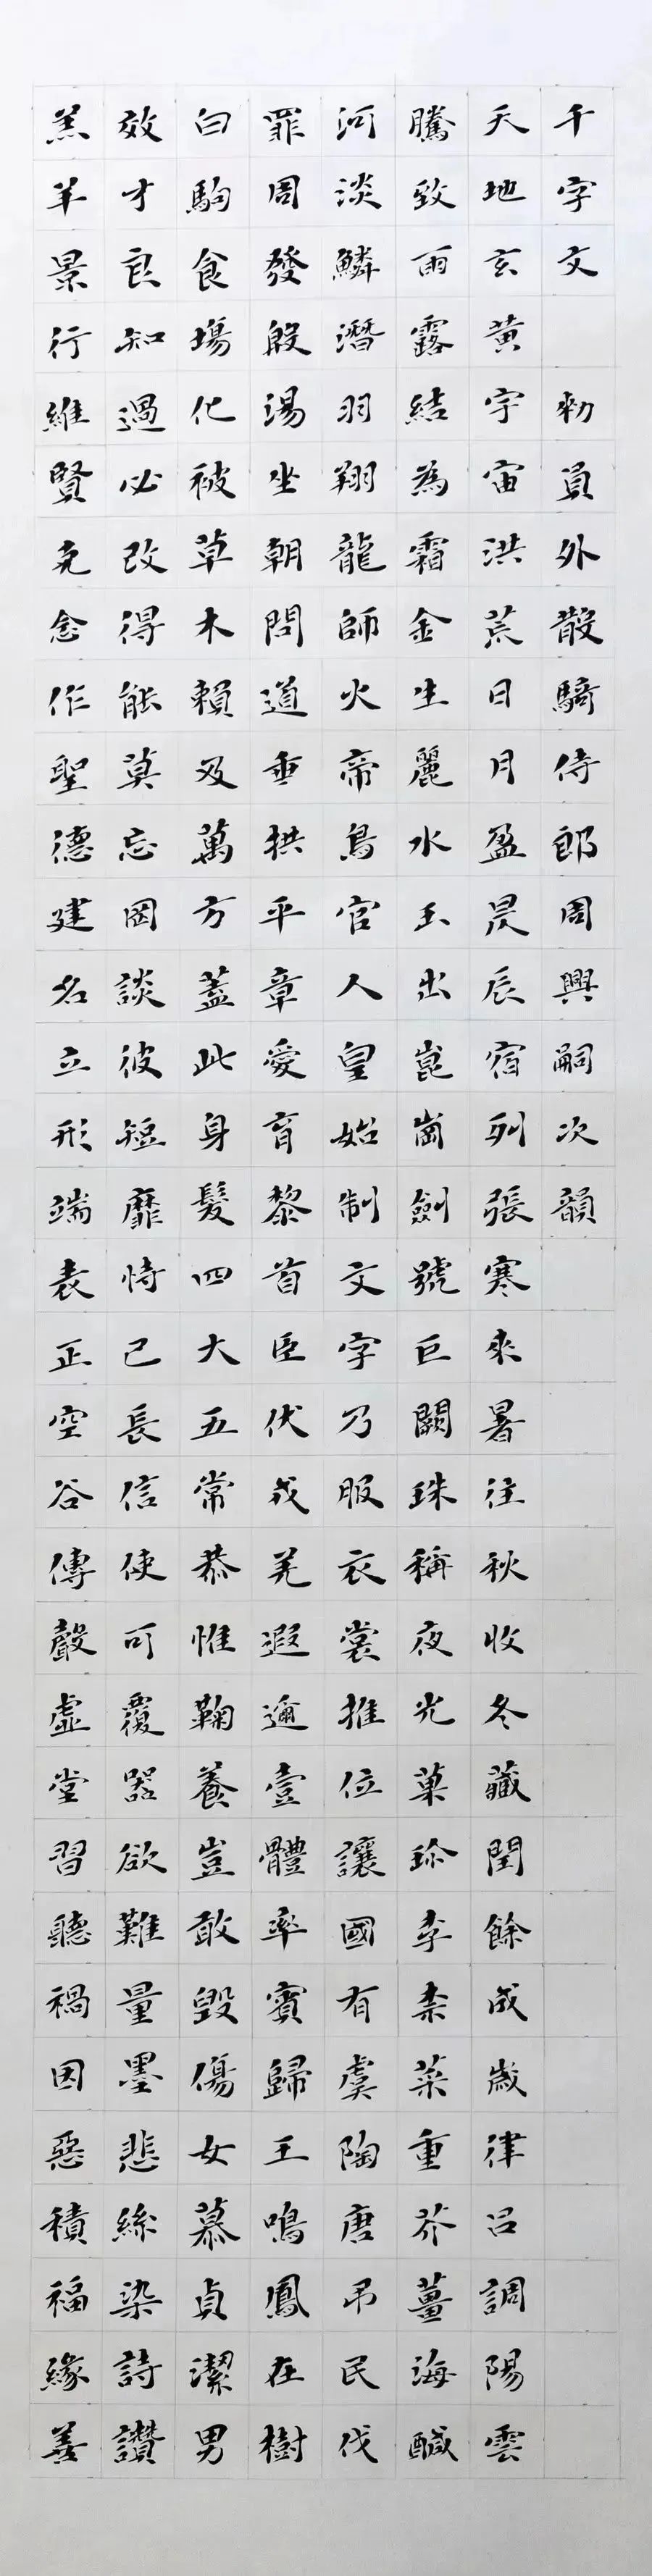 千字文 勑員外散騎侍郎周興嗣次韻
天地玄黄宇宙洪荒日月盈昃辰宿列張寒來暑往秋收冬藏閏餘成歲律吕調陽雲
騰致雨露結為霜金生麗水玉出崑崗劍號巨闕珠稱夜光菓珎李柰菜重芥薑海鹹
河淡鱗潛羽翔龍師火帝鳥官人皇始制文字乃服衣裳推位讓國有虞陶唐吊民伐
罪周發殷湯坐朝問道垂拱平章愛育黎首臣伏戎羌遐邇壹體率賓歸王鳴鳳在樹
白駒食場化被草木賴及萬方蓋此身髮四大五常恭惟鞠養豈敢毀傷女慕貞潔男
效才良知過必改得能莫忘罔談彼短靡恃己長信使可覆器欲難量墨悲絲染詩讚
羔羊景行維賢克念作聖德建名立形端表正空谷傳聲虛堂習聽禍因惡積福緣善